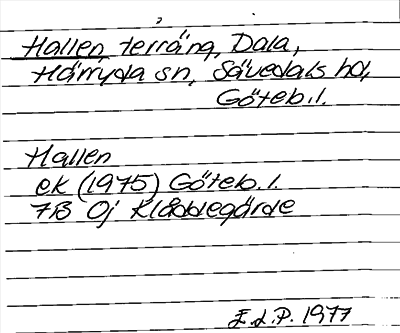 Hallen, terräng, Dala,
Härryda sn, Sävedals hd,
Göteb.l.
Hallen
ek (1975) Göteb.l.
7B 0j Klåddegärde
E.L.P. 1977